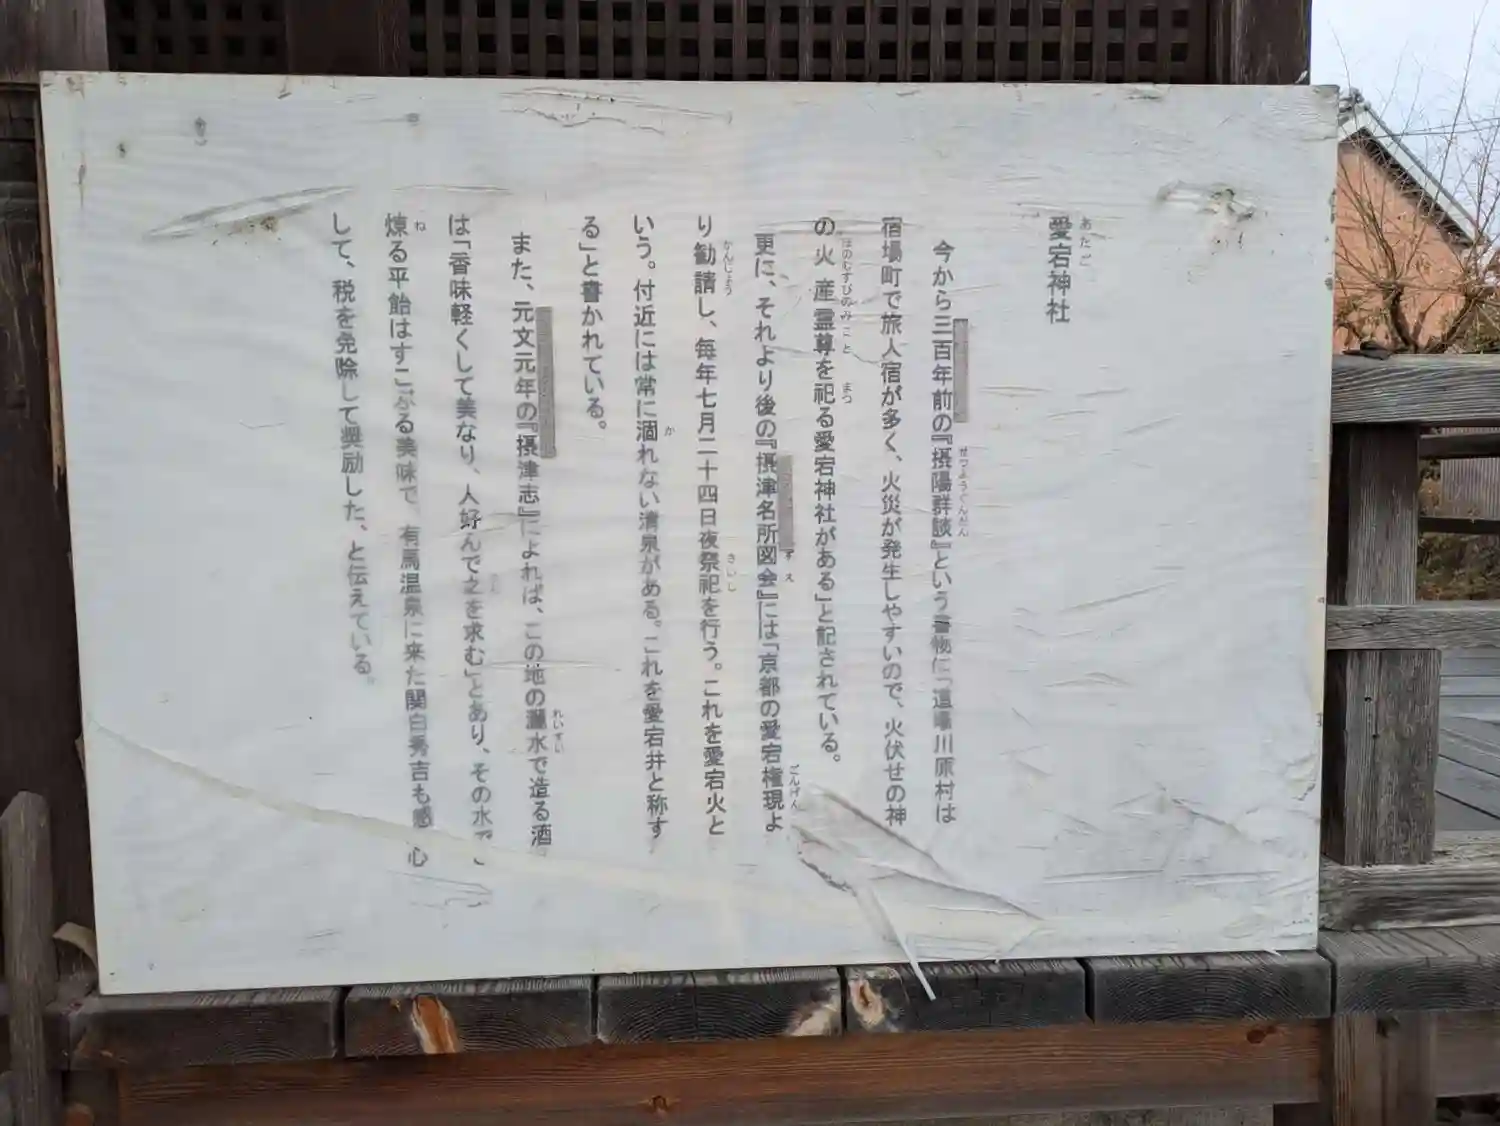 愛宕神社
あたご
今から三百年前の『摂陽群談』という書物に「道場川原村は
せつようぐんだん
宿場町で旅人宿が多く、火災が発生しやすいので、火伏せの神
の火産霊尊を祀る愛宕神社がある」と記されている。
ほのむすびのみこと まつ
更に、それより後の『摂津名所図会』には「京都の愛宕権現よ
ずえ ごんげん
り勧請し、毎年七月二十四日夜祭祀を行う。これを愛宕火と
かんじょう さいし
いう。付近には常に涸れない清泉がある。これを愛宕井と称す
か
る」と書かれている。
また、元文元年の『摂津志』によれば、この地の靈水で造る酒
れいすい
は「香味軽くして美なり、人好んで之を求む」とあり、その水でこ
煉る平飴はすこぶる美味で、有馬温泉に来た関白秀吉も感心
ね
して、税を免除して奨励した、と伝えている。